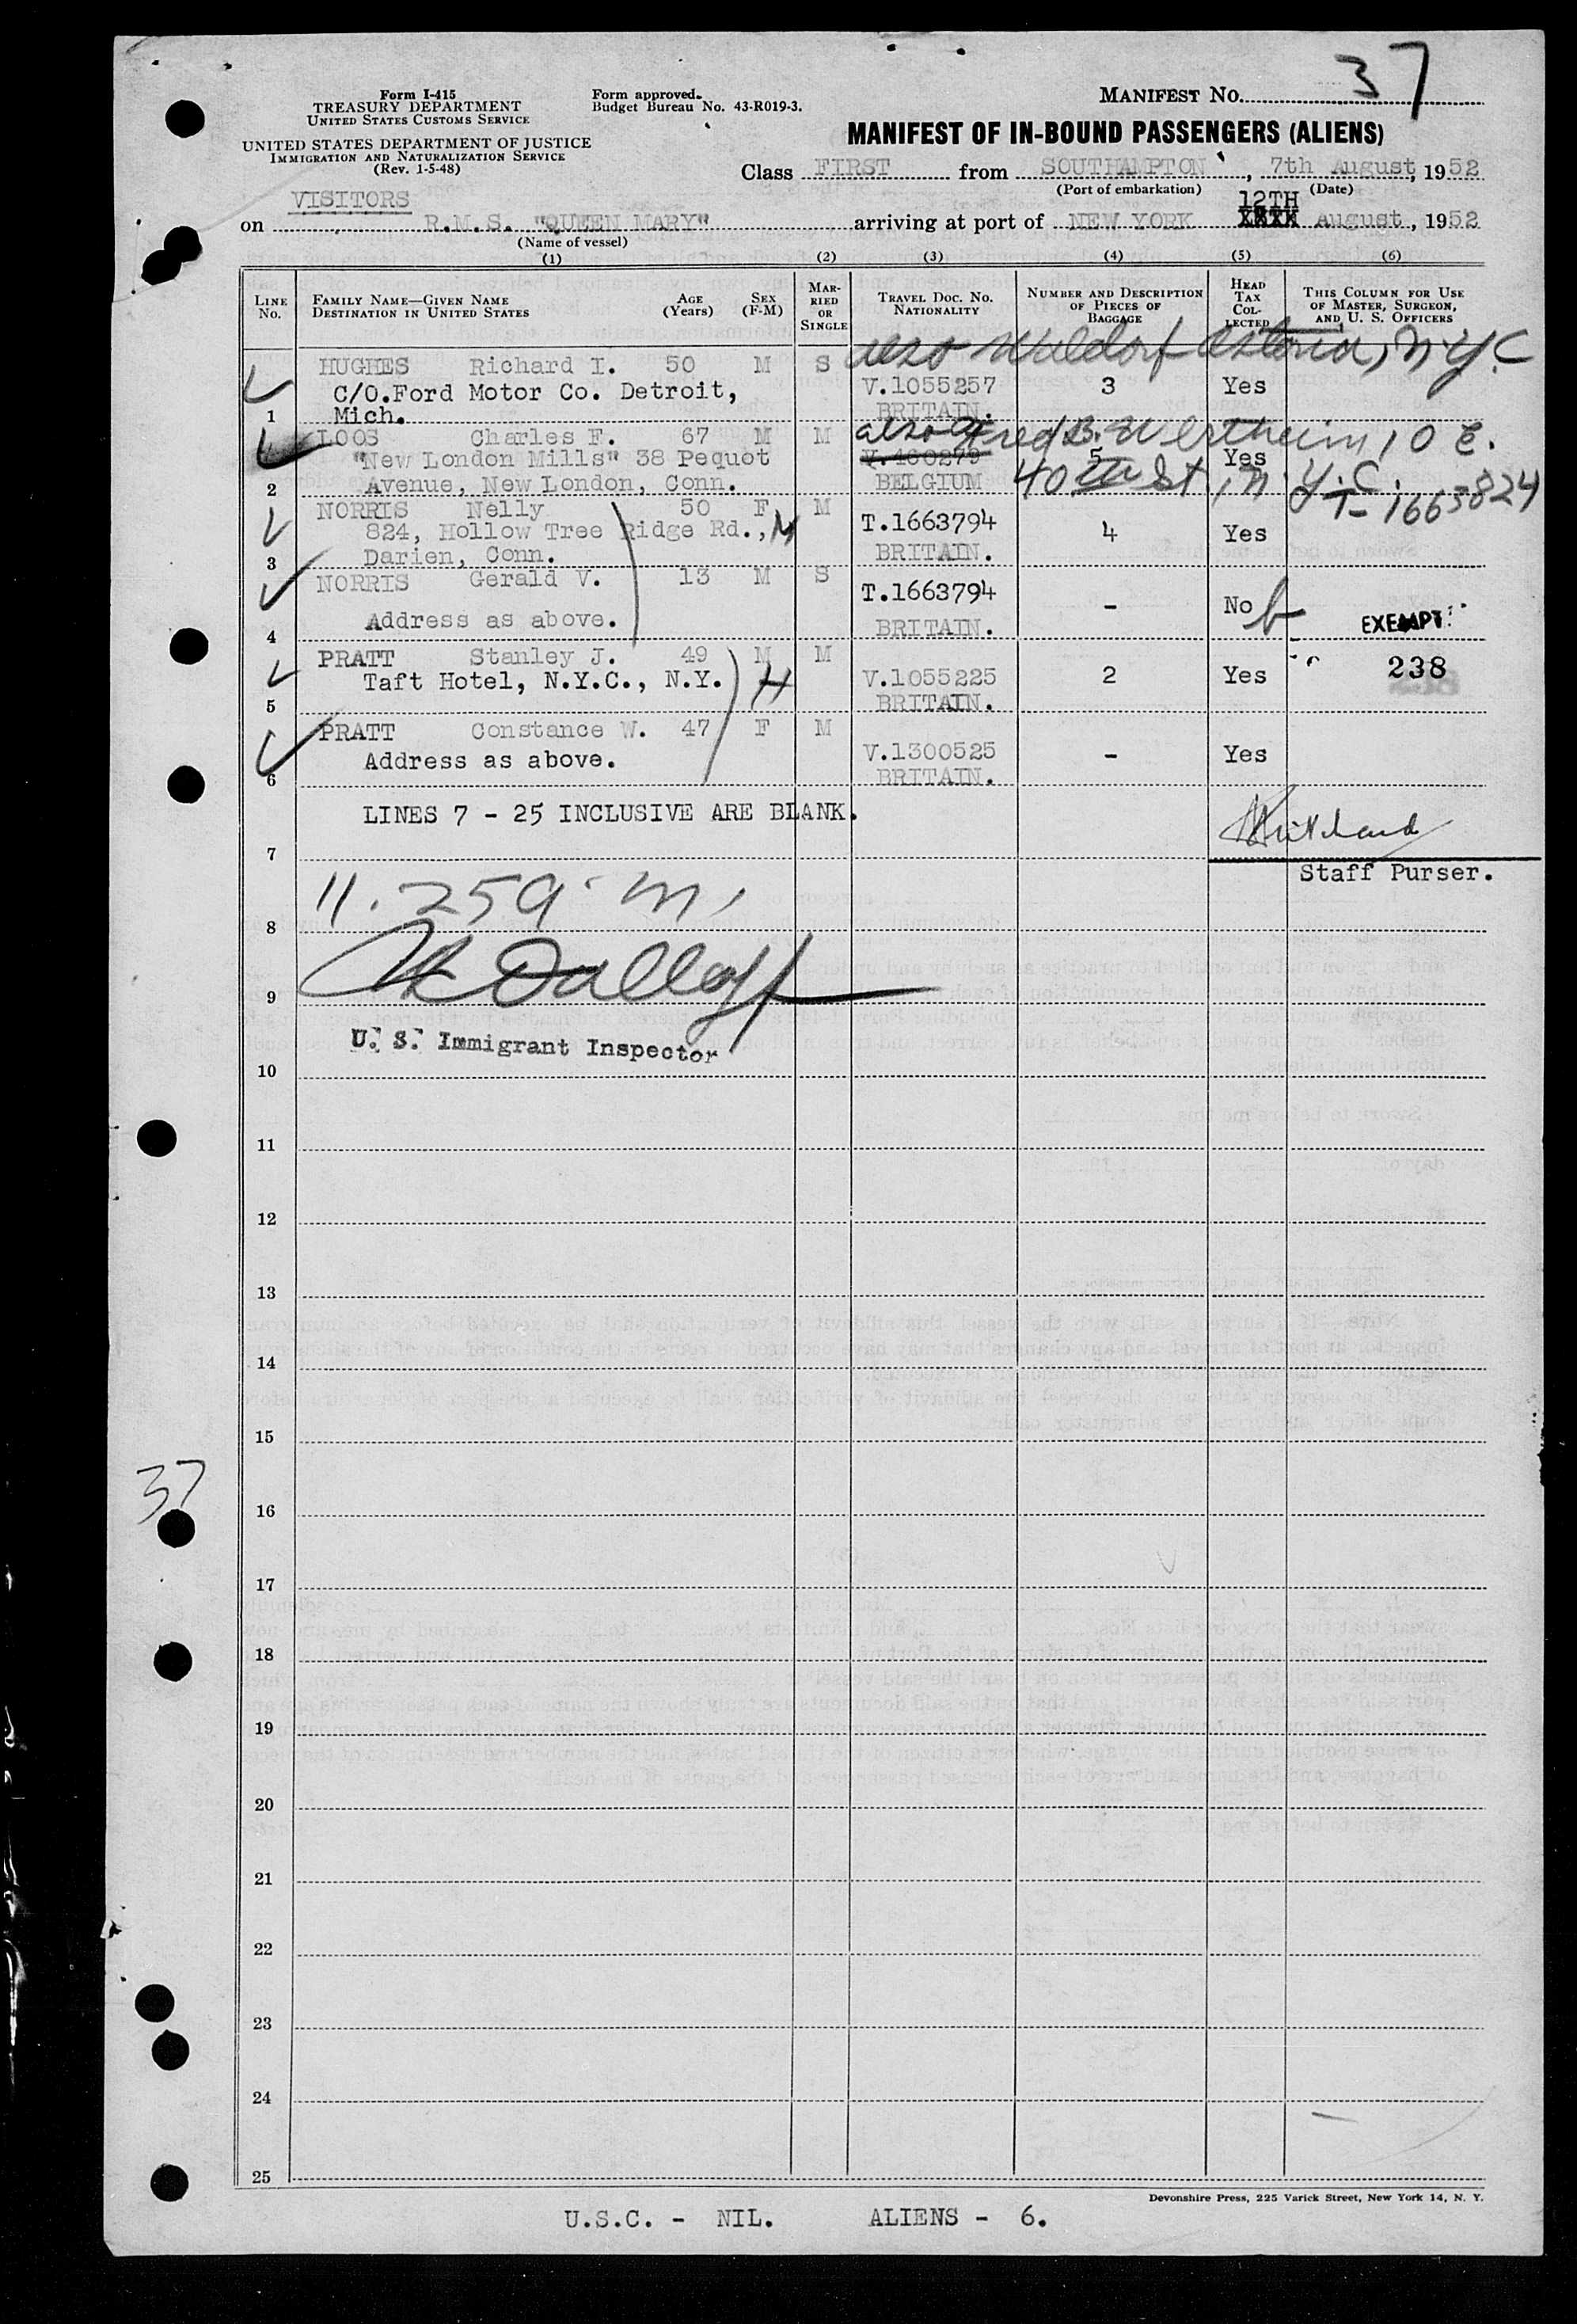 37
Form I-415
TREASURY DEPARTMENT
UNITED STATES CUSTOMS SERVICE
Form approved.
Budget Bureau No. 43-R019-3.
MANIFEST NO. 37
UNITED STATES DEPARTMENT OF JUSTICE
IMMIGRATION AND NATURALIZATION SERVICE
(Rev. 1-5-48)
MANIFEST OF IN-BOUND PASSENGERS (ALIENS)
Class FIRST from SOUTHAMPTON, 7th August, 1952
(Port of embarkation) (Date)
VISITORS
12TH
on R.M.S. "QUEEN MARY" arriving at port of NEW YORK August, 1952
(Name of vessel)
(1) (2) (3) (4) (5) (6)
LINE No.
FAMILY NAME—GIVEN NAME
DESTINATION IN UNITED STATES
AGE (Years)
SEX (F-M)
MARRIED OR SINGLE
TRAVEL DOC. NO. NATIONALITY
NUMBER AND DESCRIPTION OF PIECES OF BAGGAGE
HEAD TAX COLLECTED
THIS COLUMN FOR USE OF MASTER, SURGEON, AND U. S. OFFICERS
also Waldorf Astoria, N.Y.C
HUGHES Richard I. 50 M S
C/O.Ford Motor Co. Detroit, V.1055257 3 Yes
1 Mich. BRITAIN.
LOOS Charles F. 67 M M also Fred B. Wertheim, 10 E.
"New London Mills" 38 Pequot V.460279 5 Yes
2 Avenue, New London, Conn. BELGIUM 40th St, N.Y.C. T-1663824
NORRIS Nelly 50 F M
824, Hollow Tree Ridge Rd., T.1663794 4 Yes
3 Darien, Conn. BRITAIN.
NORRIS Gerald V. 13 M S
T.1663794 - No
4 Address as above. BRITAIN. EXEMPT
PRATT Stanley J. 49 M M 238
Taft Hotel, N.Y.C., N.Y. H V.1055225 2 Yes
5 BRITAIN.
PRATT Constance W. 47 F M
Address as above. V.1300525 - Yes
6 BRITAIN.
LINES 7 - 25 INCLUSIVE ARE BLANK.
7
Staff Purser.
11.25 a.m.
8
9
U. S. Immigrant Inspector
10
11
12
13
14
15
37
16
17
18
19
20
21
22
23
24
25
Devonshire Press, 225 Varick Street, New York 14, N. Y.
U.S.C. - NIL. ALIENS - 6.